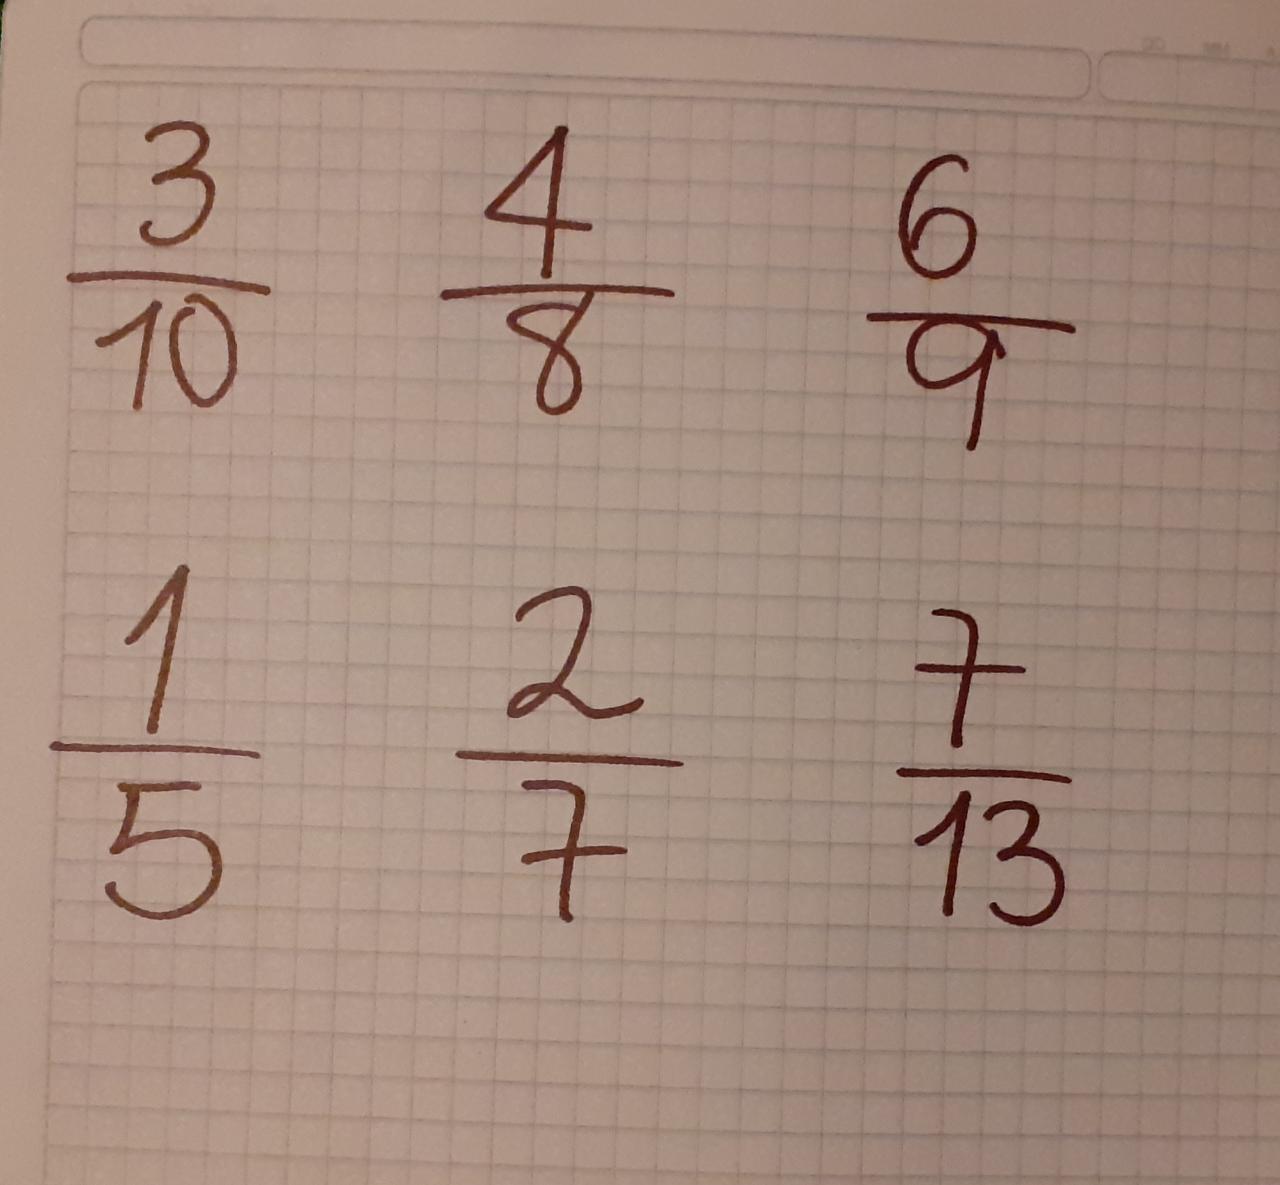 3/10 4/8 6/9
1/5 2/7 7/13